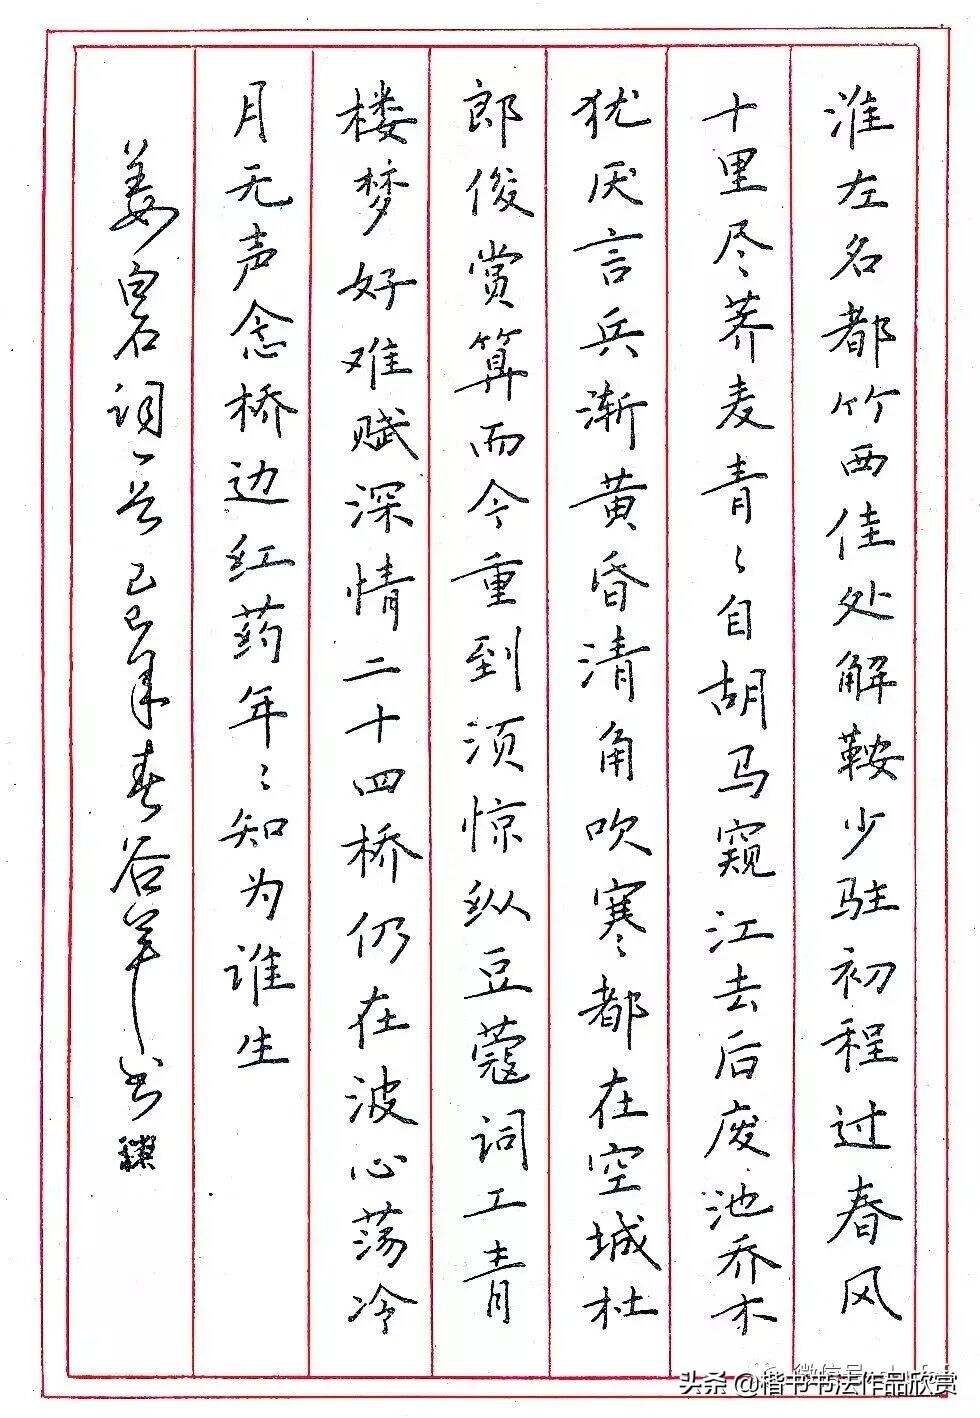 淮左名都竹西佳处解鞍少驻初程过春风
十里尽荠麦青〻自胡马窥江去后废池乔木
犹厌言兵渐黄昏清角吹寒〻都在空城杜
郎俊赏算而今重到须惊纵豆蔻词工青
楼梦好难赋深情二十四桥仍在波心荡冷
月无声念桥边红药年〻知为谁生
姜白石词一首己巳年春谷羊书
头条 @楷书书法作品欣赏